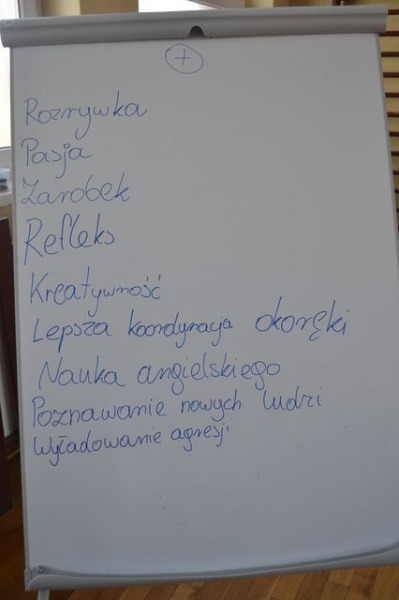 +
Rozrywka
Pasja
Zarobek
Refleks
Kreatywność
Lepsza koordynacja okoręki
Nauka angielskiego
Poznawanie nowych ludzi
Wyładowanie agresji